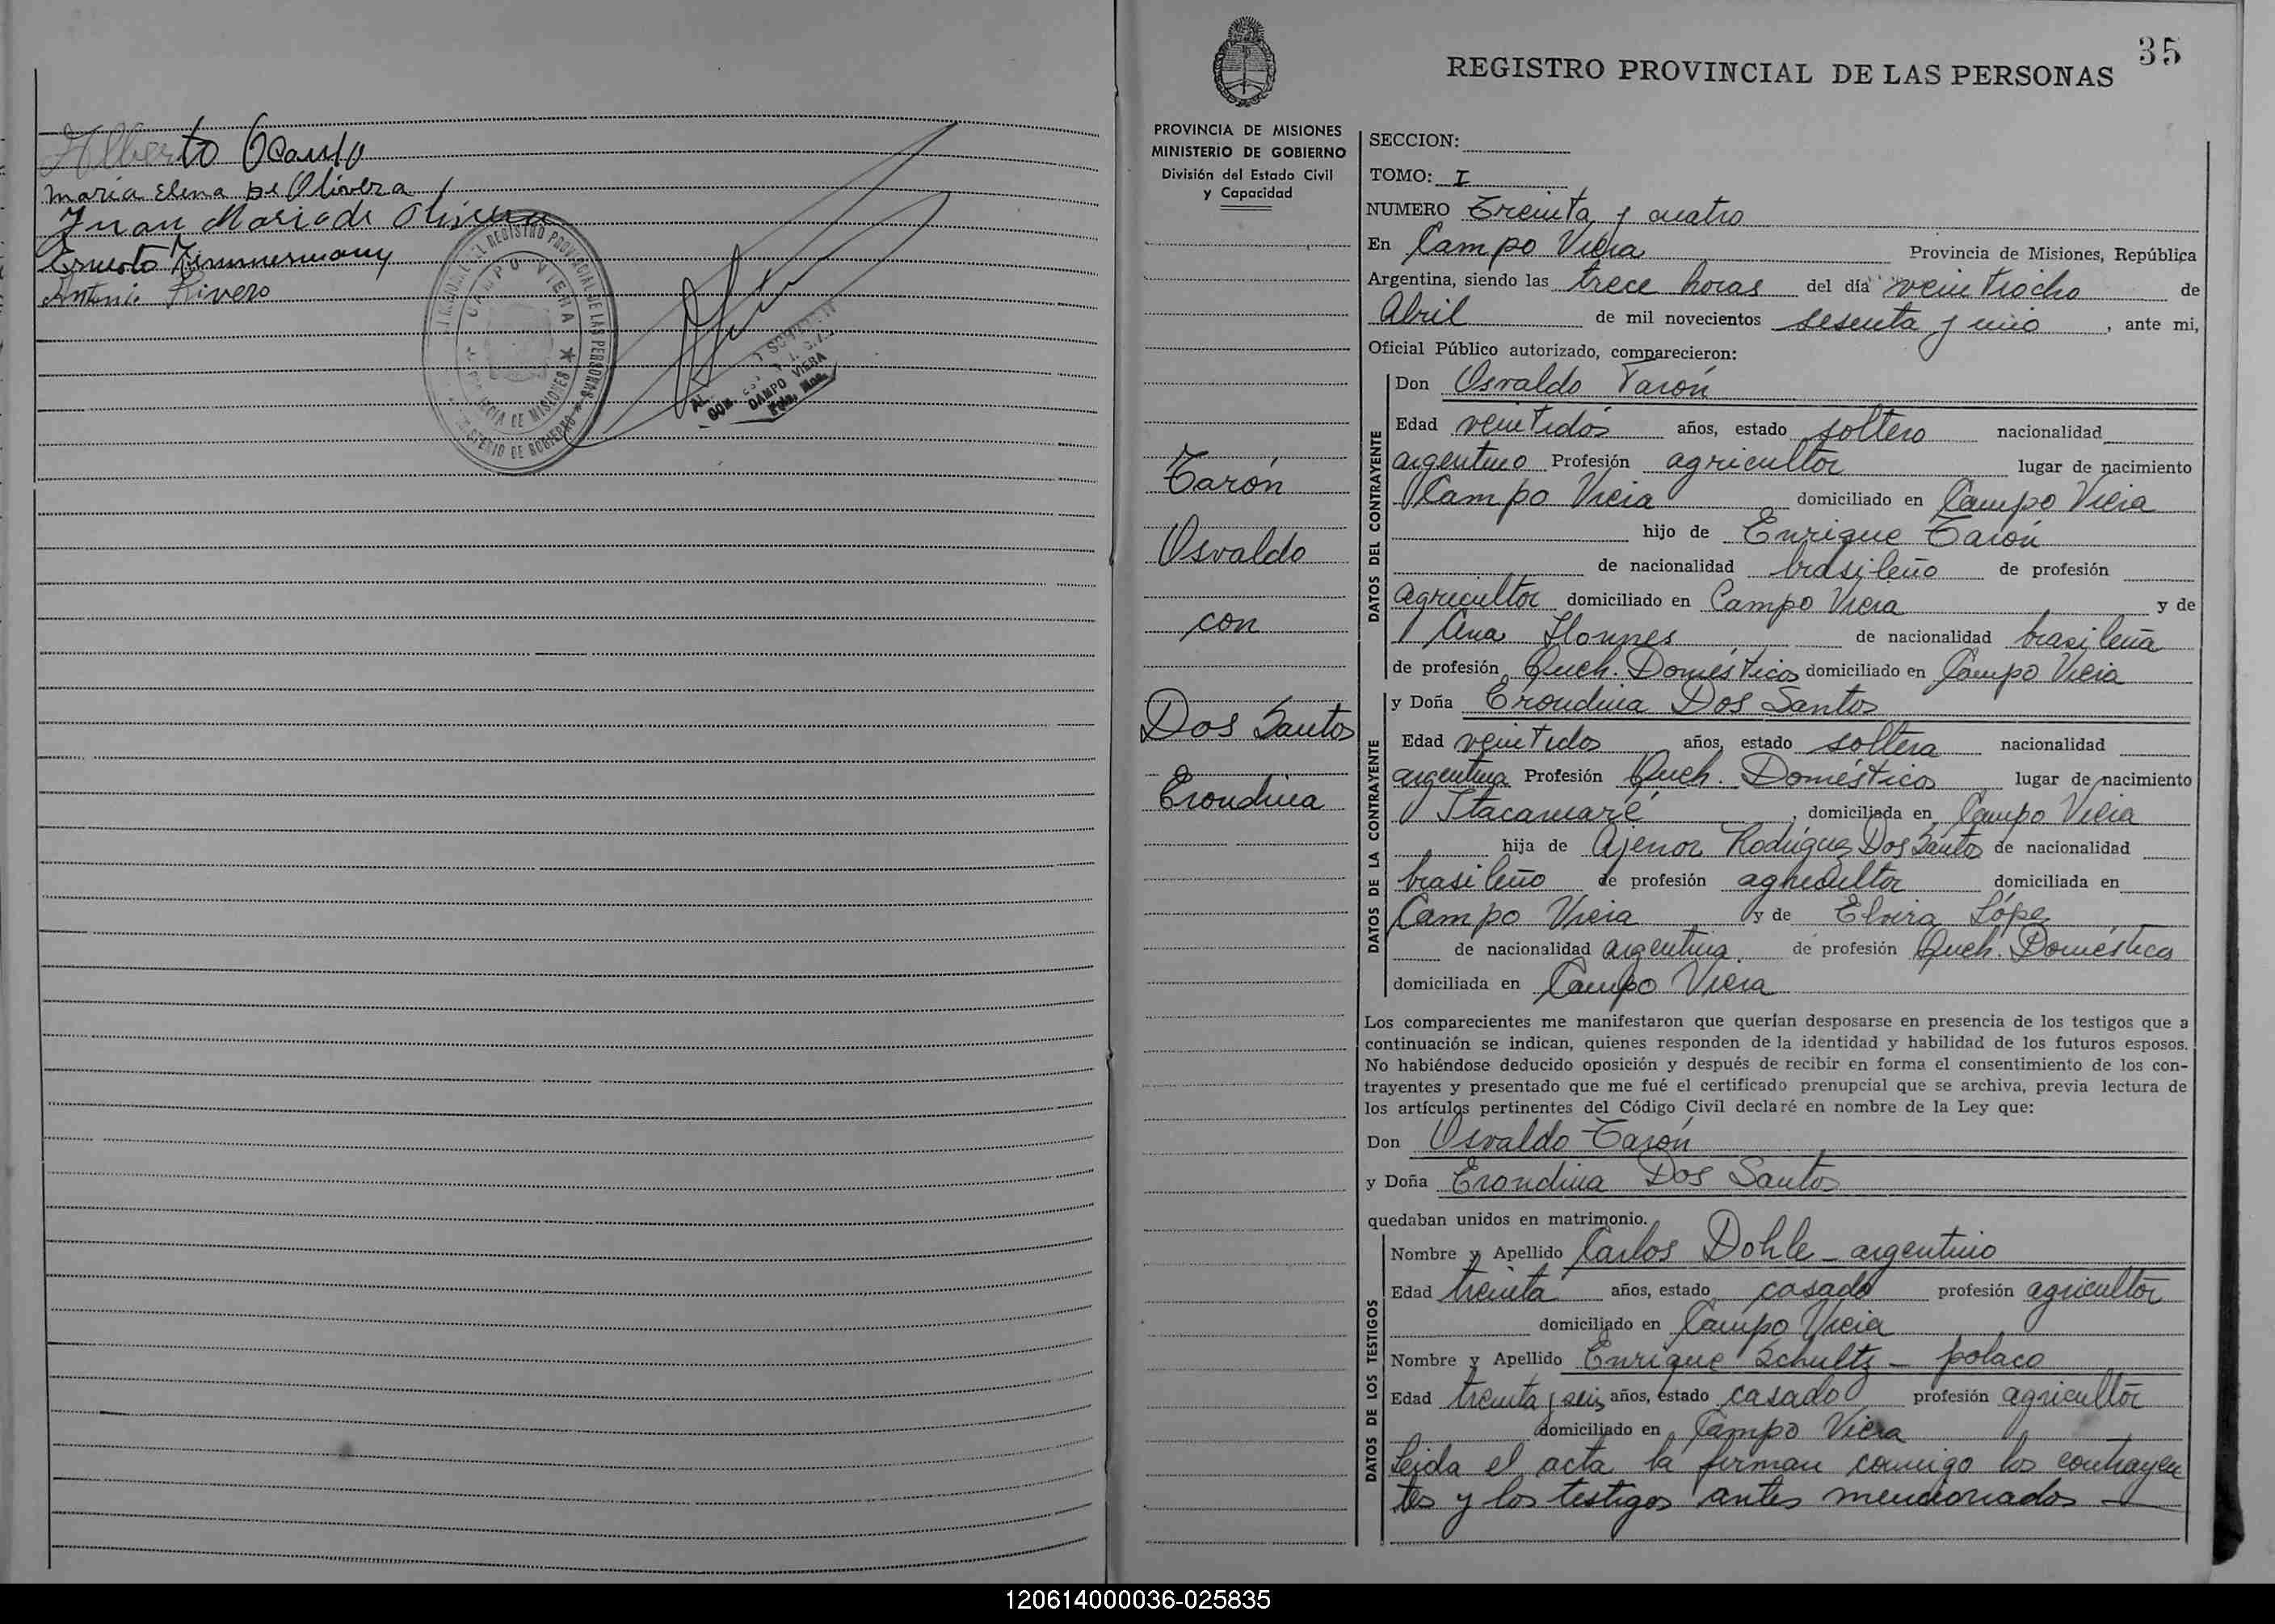 Alberto Ocampo
Maria Elena De Olivera
Juan Maria de Olivera
Ernesto Zimmermany
Antonio Rivero
REGISTRO PROVINCIAL DE LAS PERSONAS
CAMPO VIERA
MINISTERIO DE GOBIERNO
CAMPO VIERA
35
REGISTRO PROVINCIAL DE LAS PERSONAS
PROVINCIA DE MISIONES
MINISTERIO DE GOBIERNO
División del Estado Civil
y Capacidad
Tarón
Osvaldo
con
Dos Santos
Erondina
SECCION:
TOMO: I
NUMERO Treinta y cuatro
En Campo Viera Provincia de Misiones, República
Argentina, siendo las trece horas del día veintiocho de
Abril de mil novecientos sesenta y uno, ante mi,
Oficial Público autorizado, comparecieron:
DATOS DEL CONTRAYENTE
Don Osvaldo Tarón
Edad veintidós años, estado soltero nacionalidad
argentino Profesión agricultor lugar de nacimiento
Campo Viera domiciliado en Campo Viera
hijo de Enrique Tarón
de nacionalidad brasileño de profesión
agricultor domiciliado en Campo Viera y de
Ana de nacionalidad brasileña
de profesión Queh. Domésticos domiciliado en Campo Viera
DATOS DE LA CONTRAYENTE
y Doña Erondina Dos Santos
Edad veintidos años, estado soltera nacionalidad
argentina Profesión Queh. Domésticos lugar de nacimiento
Itacamaré, domiciliada en Campo Viera
hija de Ajenor Rodriguez Dos Santos de nacionalidad
brasileño de profesión agricultor domiciliada en
Campo Viera y de Elvira López
de nacionalidad argentina. de profesión Queh. Domésticos
domiciliada en Campo Viera
Los comparecientes me manifestaron que querían desposarse en presencia de los testigos que a
continuación se indican, quienes responden de la identidad y habilidad de los futuros esposos.
No habiéndose deducido oposición y después de recibir en forma el consentimiento de los con-
trayentes y presentado que me fué el certificado prenupcial que se archiva, previa lectura de
los artículos pertinentes del Código Civil declaré en nombre de la Ley que:
Don Osvaldo Tarón
y Doña Erondina Dos Santos
quedaban unidos en matrimonio.
DATOS DE LOS TESTIGOS
Nombre y Apellido Carlos Dohle - argentino
Edad treinta años, estado casado profesión agricultor
domiciliado en Campo Viera
Nombre y Apellido Enrique Schultz - polaco
Edad treinta y seis años, estado casado profesión agricultor
domiciliado en Campo Viera
Leida el acta la firman conmigo los contrayen
tes y los testigos antes mencionados —
120614000036-025835